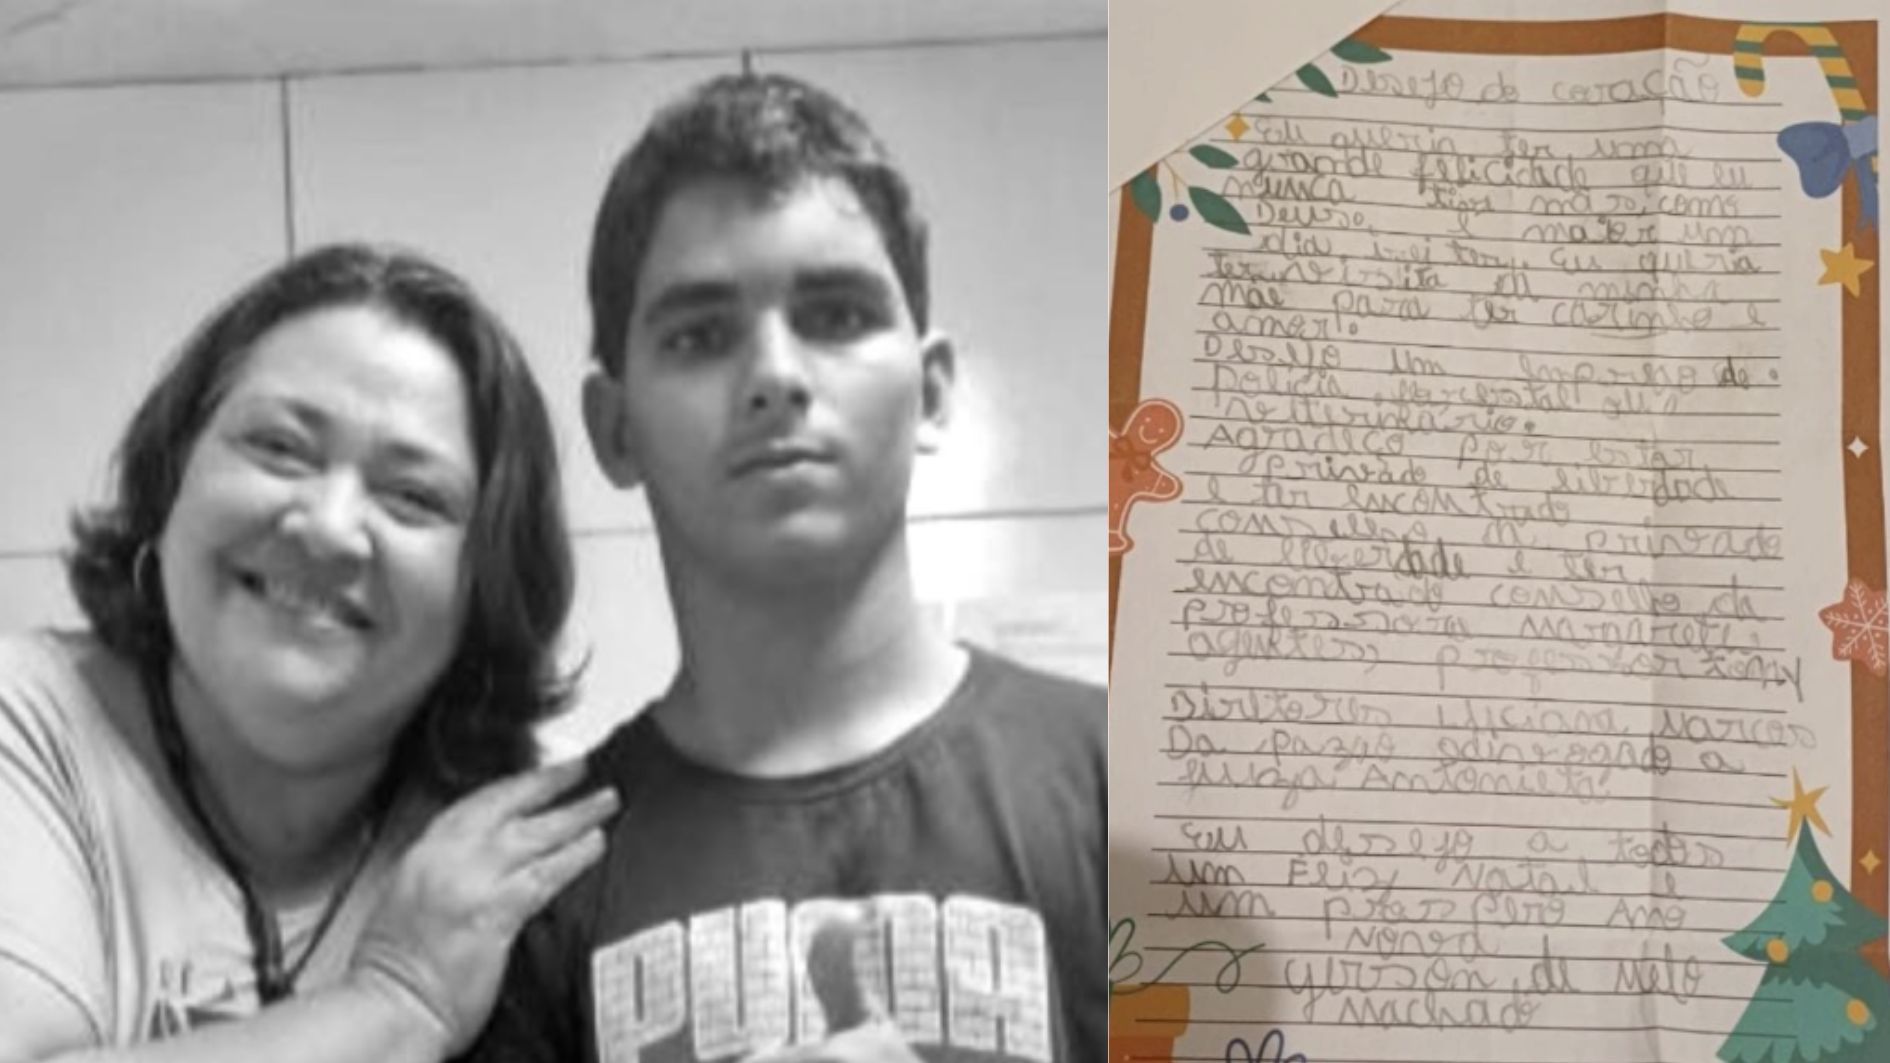 PUMA
Desejo do coração
Eu queria ter uma
grande felicidade que eu
nunca tive mas como
Deus é maior um
dia irei ter. Eu queria
ter visita da minha
mãe para ter carinho e
amor.
Desejo um emprego de
policia florestal ou
veterinário.
Agradeço por estar
privado de liberdade
e ter encontrado
conselho privado
de liberdade e ter
encontrado conselho da
professora Margareti,
professor tony
Diretores Luciana, Marcos
Da
juiza Antonieta.
Eu desejo a todos
um Feliz Natal e
um prospero Ano
Novo
gerson de Melo
Machado